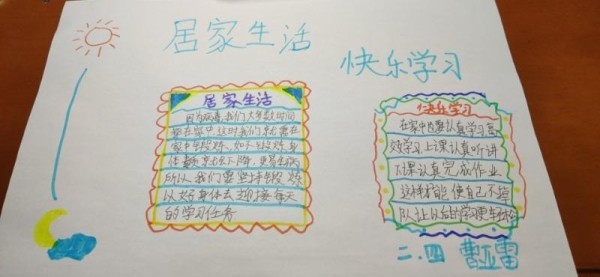 居家生活
快乐学习
居家生活
因为病毒,我们大多数时间
都在家中,这时我们就需在
家中锻炼,如不锻炼身
体素质就会下降,更易生病
所以我们要坚持锻炼
以好身体去迎接每天
的学习任务
快乐学习
在家中也要认真学习高
效学习上课认真听讲
下课认真完成作业
这样才能使自己不掉
队让以后的学习更轻松
二.四 曹亚雷